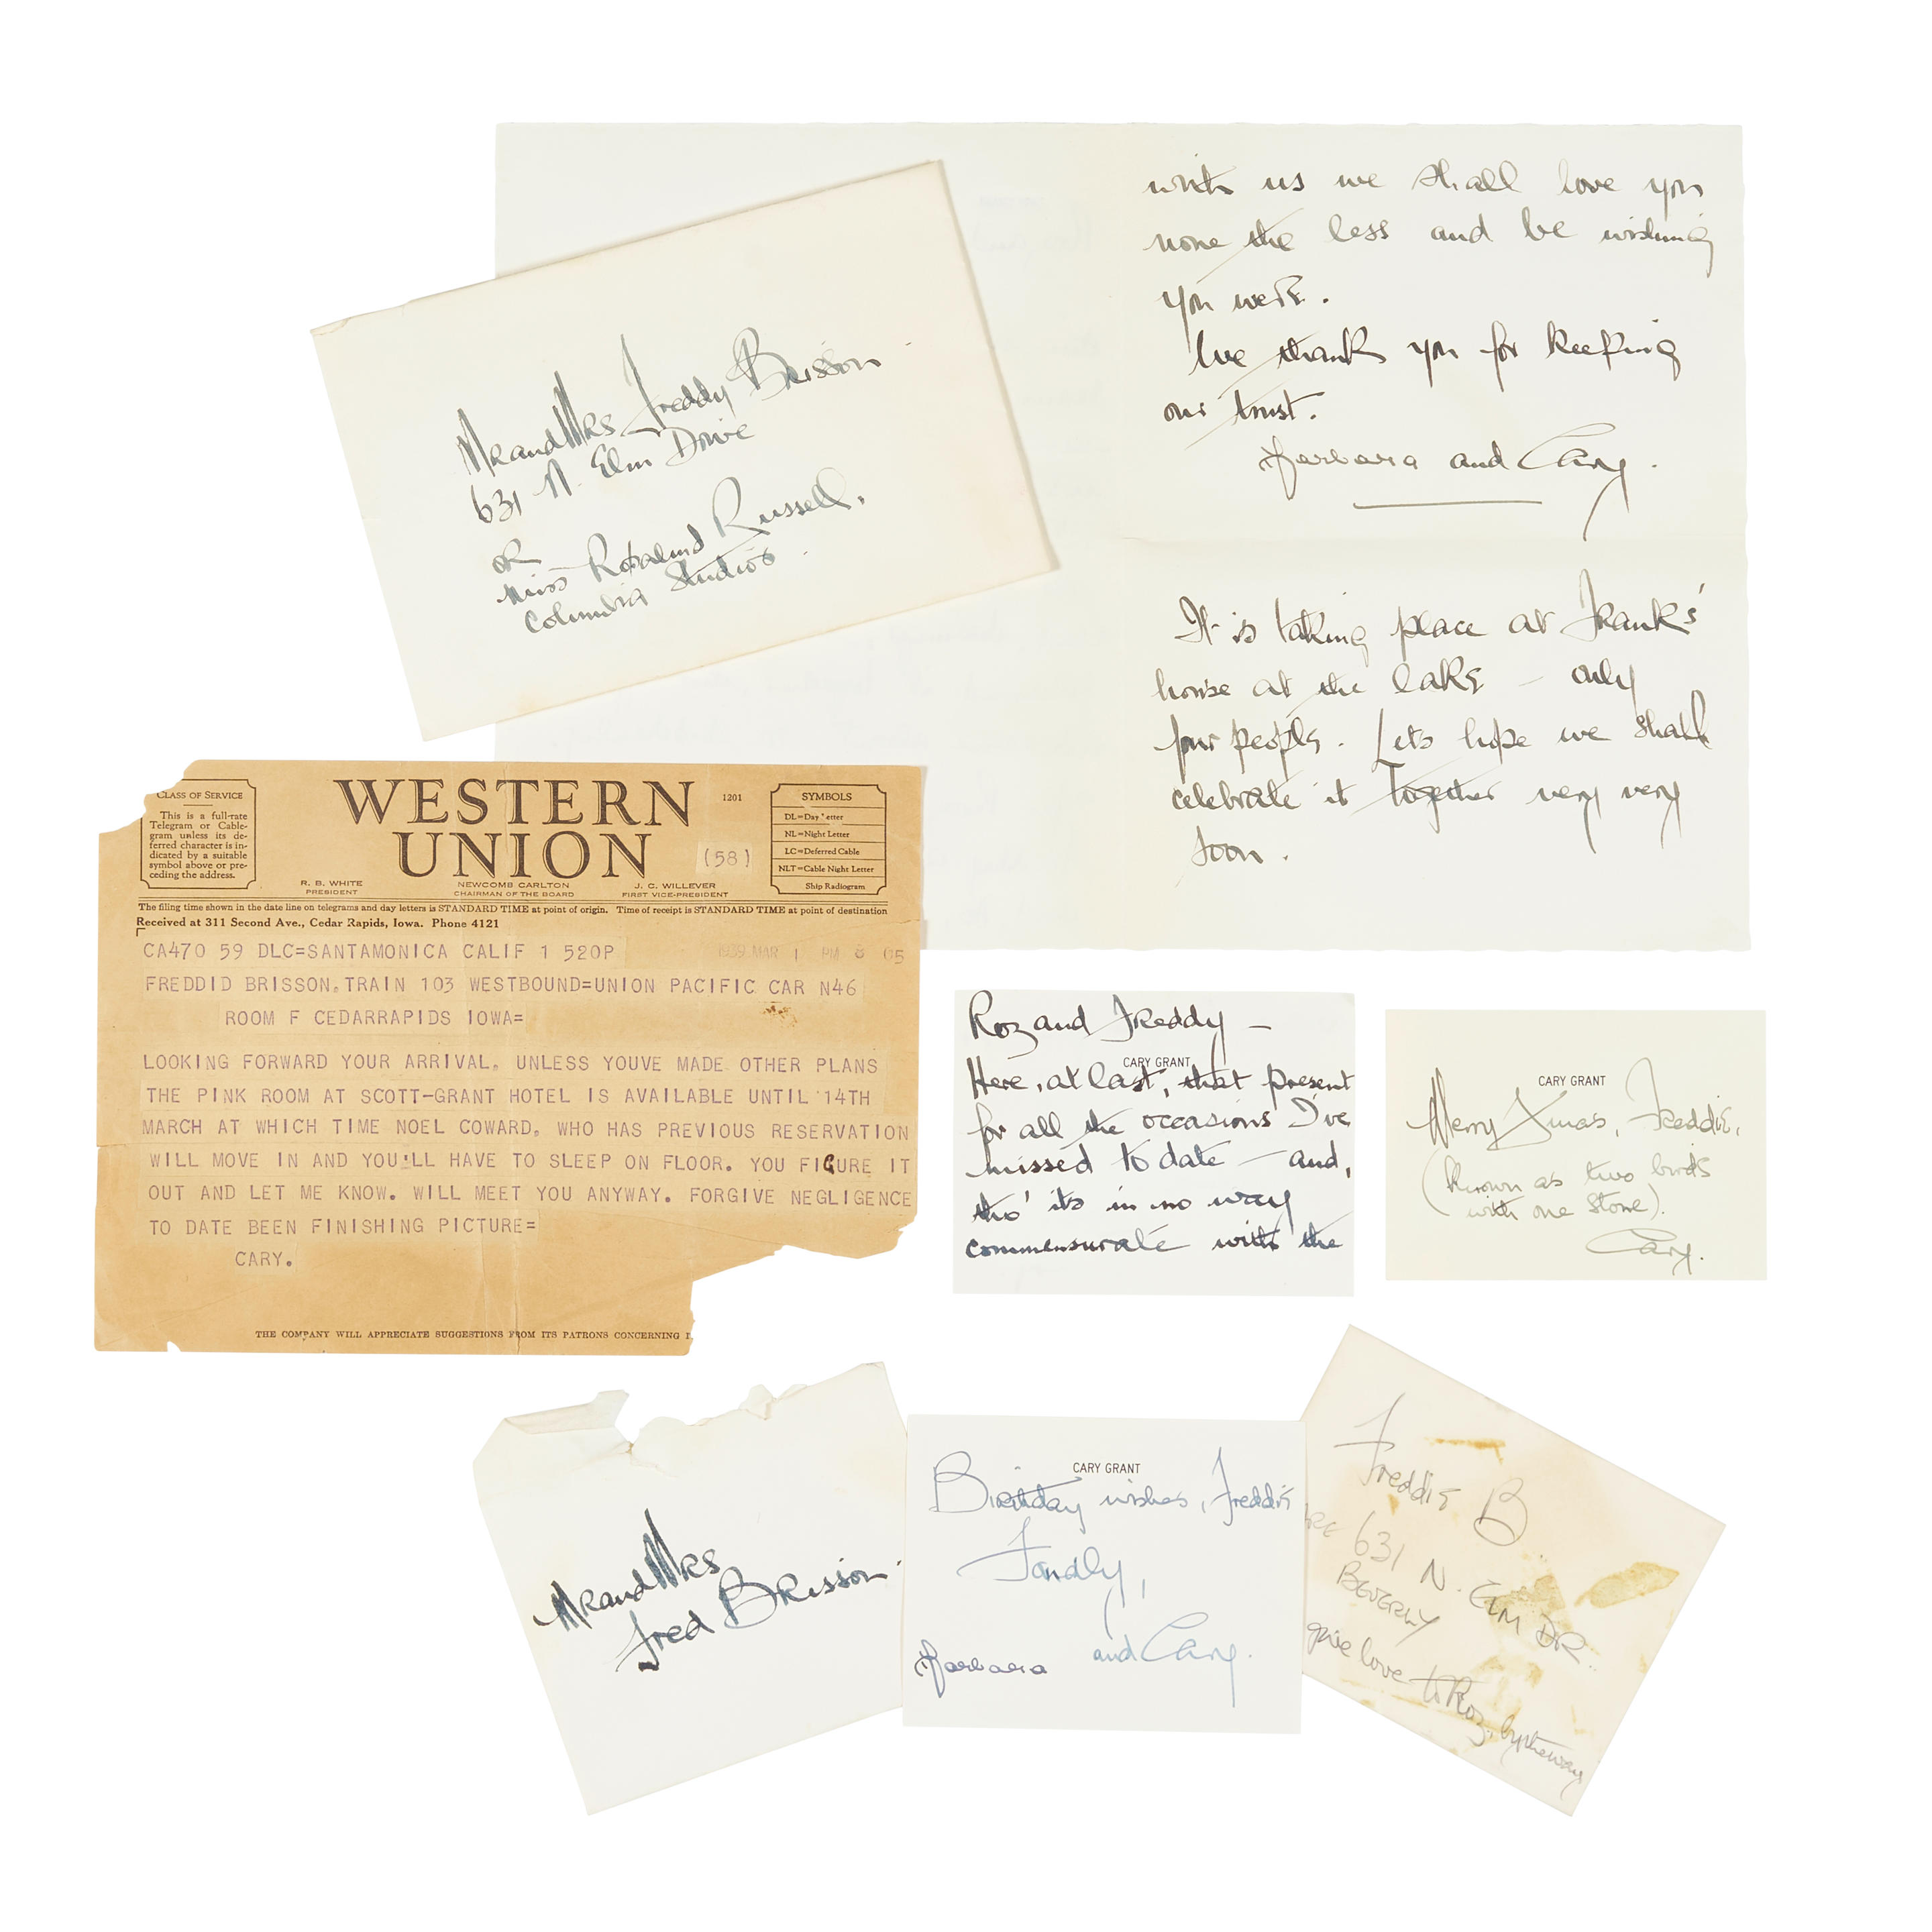 with us we shall love you
none the less and be wishing
you were.
We thank you for keeping
our trust.
Barbara and Cary.
It is taking place at Franks'
house at the lake – only
four people. Lets hope we shall
celebrate it together very very
soon.
Mr and Mrs Freddy Brisson.
631 N. Elm Drive
OR
Miss Rosalind Russell.
Columbia Studios.
CLASS OF SERVICE
This is a full-rate
Telegram or Cable-
gram unless its de-
ferred character is in-
dicated by a suitable
symbol above or pre-
ceding the address.
WESTERN
UNION
1201
(58)
R. B. WHITE
PRESIDENT
NEWCOMB CARLTON
CHAIRMAN OF THE BOARD
J. C. WILLEVER
FIRST VICE-PRESIDENT
SYMBOLS
DL=Day Letter
NL=Night Letter
LC=Deferred Cable
NLT=Cable Night Letter
Ship Radiogram
The filing time shown in the date line on telegrams and day letters is STANDARD TIME at point of origin. Time of receipt is STANDARD TIME at point of destination
Received at 311 Second Ave., Cedar Rapids, Iowa. Phone 4121
CA470 59 DLC=SANTAMONICA CALIF 1 520P
1939 MAR 1 PM 8 05
FREDDID BRISSON.TRAIN 103 WESTBOUND=UNION PACIFIC CAR N46
ROOM F CEDARRAPIDS IOWA=
LOOKING FORWARD YOUR ARRIVAL. UNLESS YOUVE MADE OTHER PLANS
THE PINK ROOM AT SCOTT-GRANT HOTEL IS AVAILABLE UNTIL 14TH
MARCH AT WHICH TIME NOEL COWARD. WHO HAS PREVIOUS RESERVATION
WILL MOVE IN AND YOU'LL HAVE TO SLEEP ON FLOOR. YOU FIGURE IT
OUT AND LET ME KNOW. WILL MEET YOU ANYWAY. FORGIVE NEGLIGENCE
TO DATE BEEN FINISHING PICTURE=
CARY.
THE COMPANY WILL APPRECIATE SUGGESTIONS FROM ITS PATRONS CONCERNING I
Roz and Freddy –
CARY GRANT
Here, at last, that present
for all the occasions I've
missed to date – and,
tho' its in no way
commensurate with the
CARY GRANT
Merry Xmas, Freddie,
(known as two birds
with one stone).
Cary.
Mr and Mrs
Fred Brisson.
CARY GRANT
Birthday wishes, Freddie
Fondly,
Barbara and Cary.
Freddie B.
631 N. ELM DR.
BEVERLY
give love to Roz, bytheway